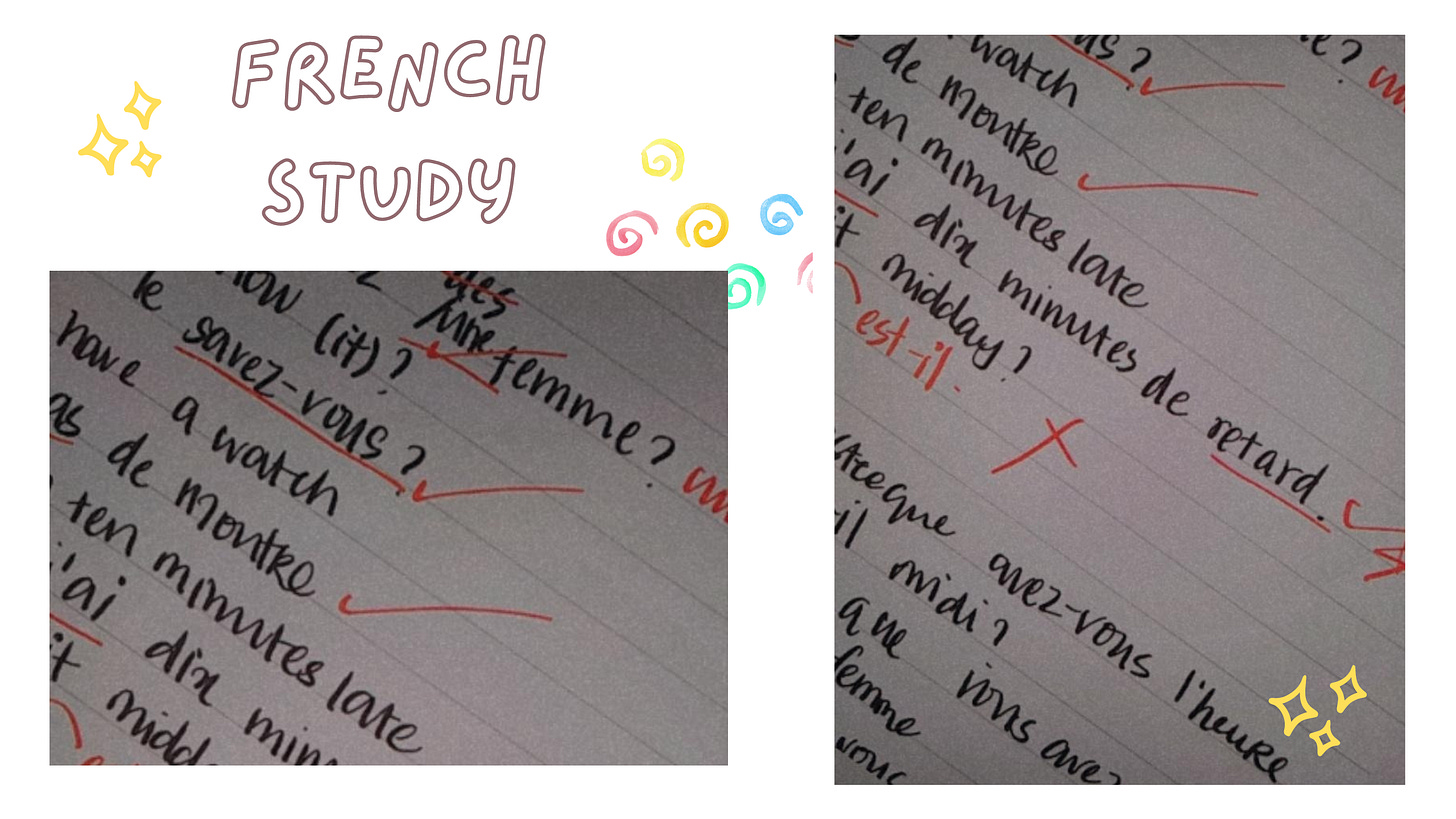 FRENCH
STUDY
des
une femme?
le now (it)?
savez-vous?
have a watch
as de montre
ten minutes late
j'ai dix min
it midd
us?
watch
de montre
ten minutes late
'ai dix minutes de retard.
it midday?
est-il.
avez-vous l'heure
-il midi?
que vous avez
femme
vous